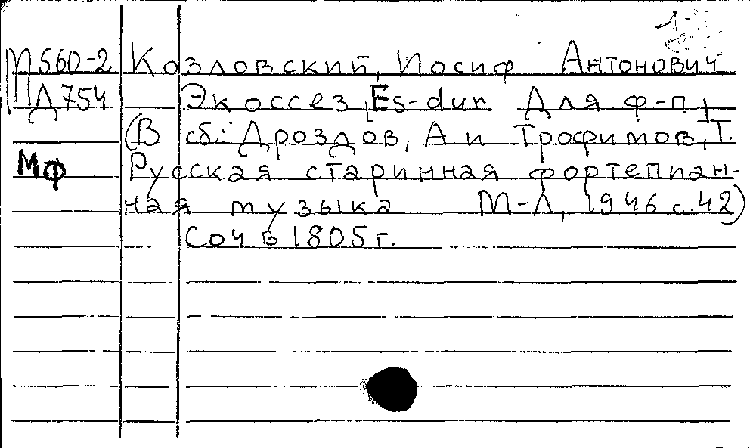 М560-2 Козловский, Иосиф Антонович
Д754 Экоссез Es-dur. Для ф-п.
(В сб: Дроздов, А и Трофимов, Т.
Мф Русская старинная фортепиан-
ная музыка М-Л, 1946 с.42)
Соч в 1805 г.